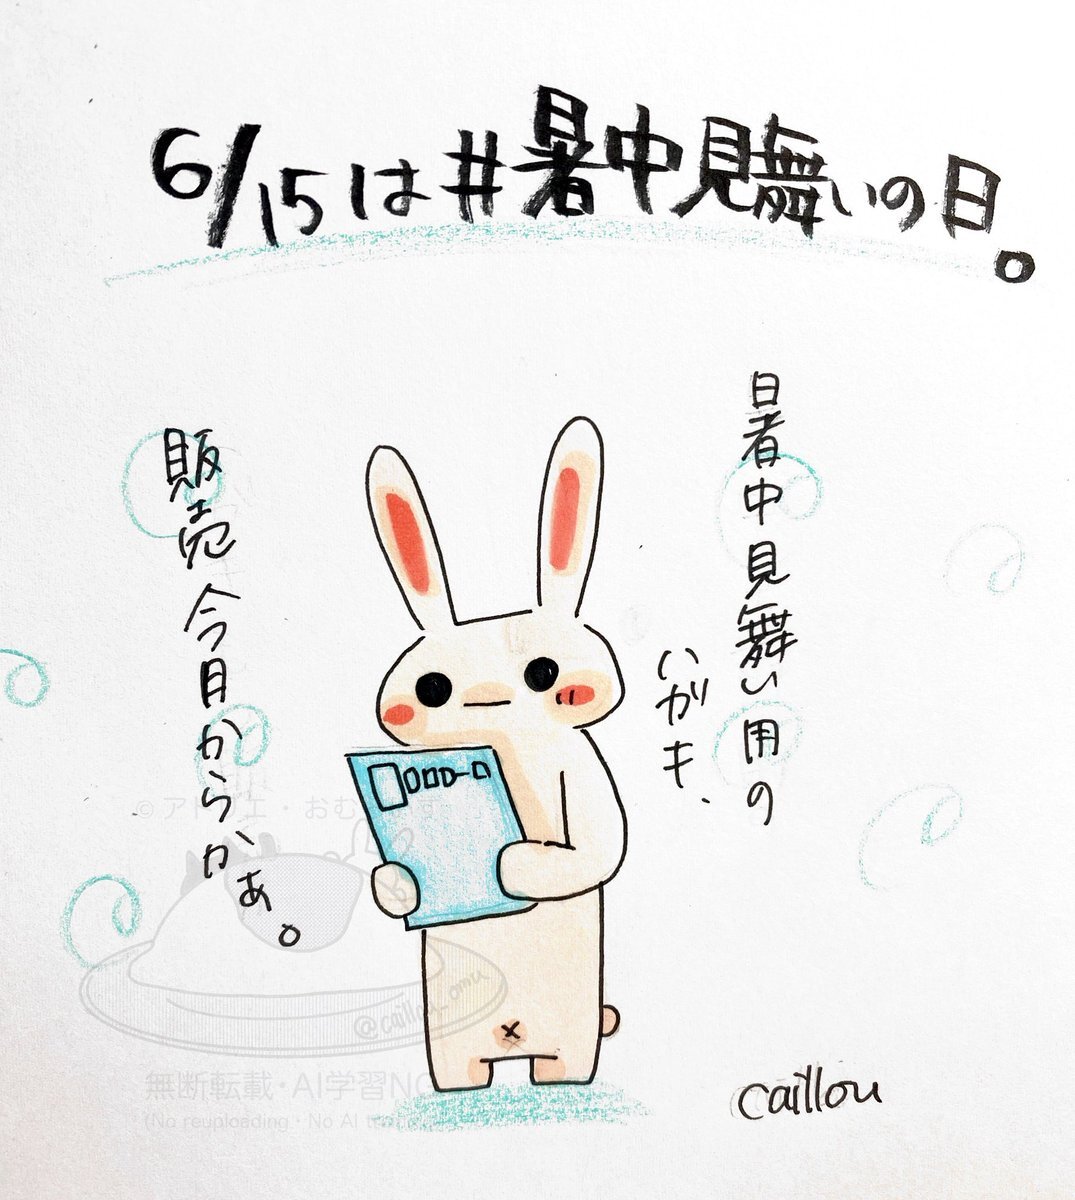 6/15は#暑中見舞いの日。
暑中見舞い用の
ハガキ、
販売今月からかぁ。
© アトリエ・おむらいす
@caillou_omu
無断転載・AI学習NG
(No reuploading・No AI
caillou